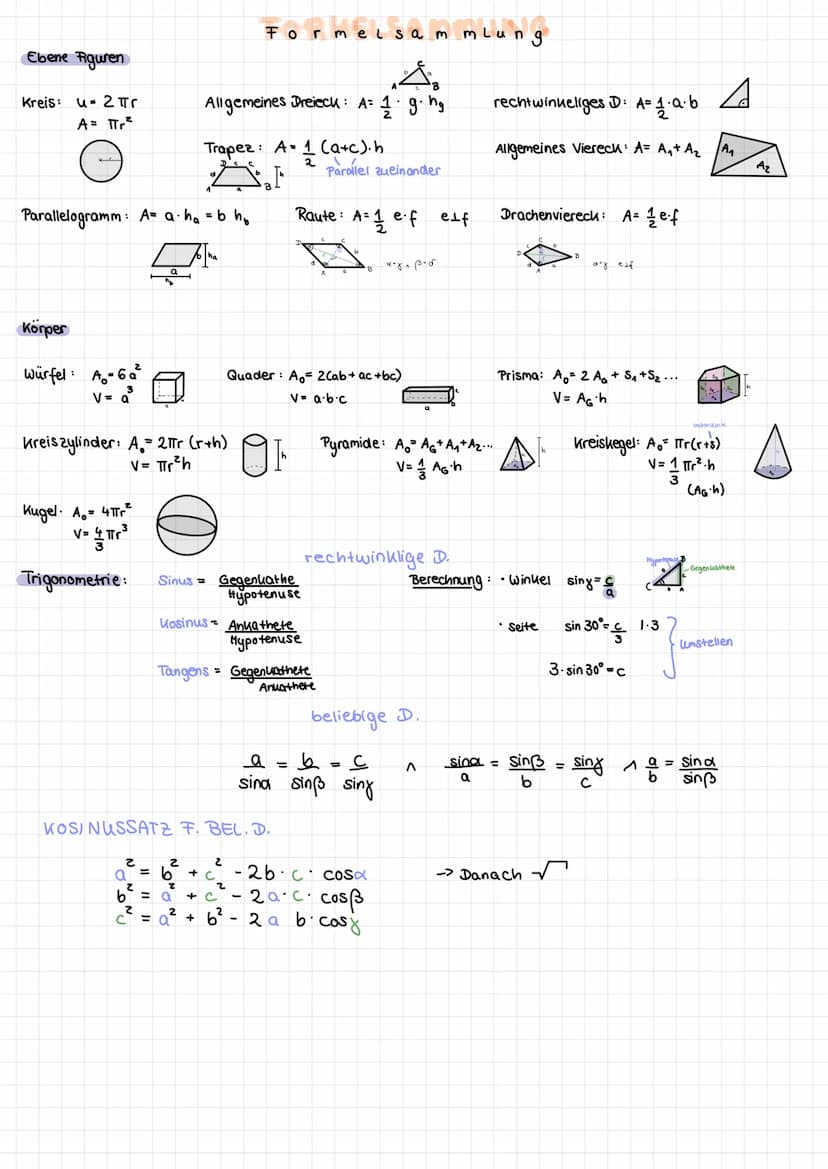 Formelsammlung
Ebene Figuren
Kreis: u = 2πr
A = πr²
Allgemeines Dreieck: A = 1/2 · g · hg
A B C
rechtwinkeliges D: A = 1/2 · a · b
Trapez: A = 1/2 (a+c) · h
Parallel zueinander
Allgemeines Viereck: A = A₁ + A₂
A₁ A₂
Parallelogramm: A = a · ha = b hb
a b ha
hb
Raute: A = 1/2 e·f e⊥f
Drachenviereck: A = 1/2 e·f
α=γ e⊥f
Körper
Würfel: A₀ = 6a²
V = a³
Quader: A₀ = 2(ab + ac + bc)
V = a·b·c
Prisma: A₀ = 2 A₀ + S₁ + S₂ ...
V = AG · h
Kreiszylinder: A₀ = 2πr (r+h)
V = πr²h
h
Pyramide: A₀ = AG + A₁ + A₂ ...
V = 1/3 AG · h
h
Kreiskegel: A₀ = πr(r+s)
V = 1/3 πr² · h
(AG · h)
Kugel. A₀ = 4πr²
V = 4/3 πr³
rechtwinklige D.
Trigonometrie:
Sinus = Gegenkathe / Hypotenuse
Kosinus = Ankathete / Hypotenuse
Tangens = Gegenkathete / Ankathete
Berechnung: · Winkel sinγ = c/a
Hypotenuse Gegenkathete
· Seite sin 30° = c/3 |·3
3 · sin 30° = c
umstellen
beliebige D.
a/sinα = b/sinβ = c/sinγ ∧ sinα/a = sinβ/b = sinγ/c ∧ a/b = sinα/sinβ
KOSINUSSATZ F. BEL. D.
a² = b² + c² - 2b · c · cosα
b² = a² + c² - 2a · c · cosβ
c² = a² + b² - 2a b · cosγ
-> Danach √